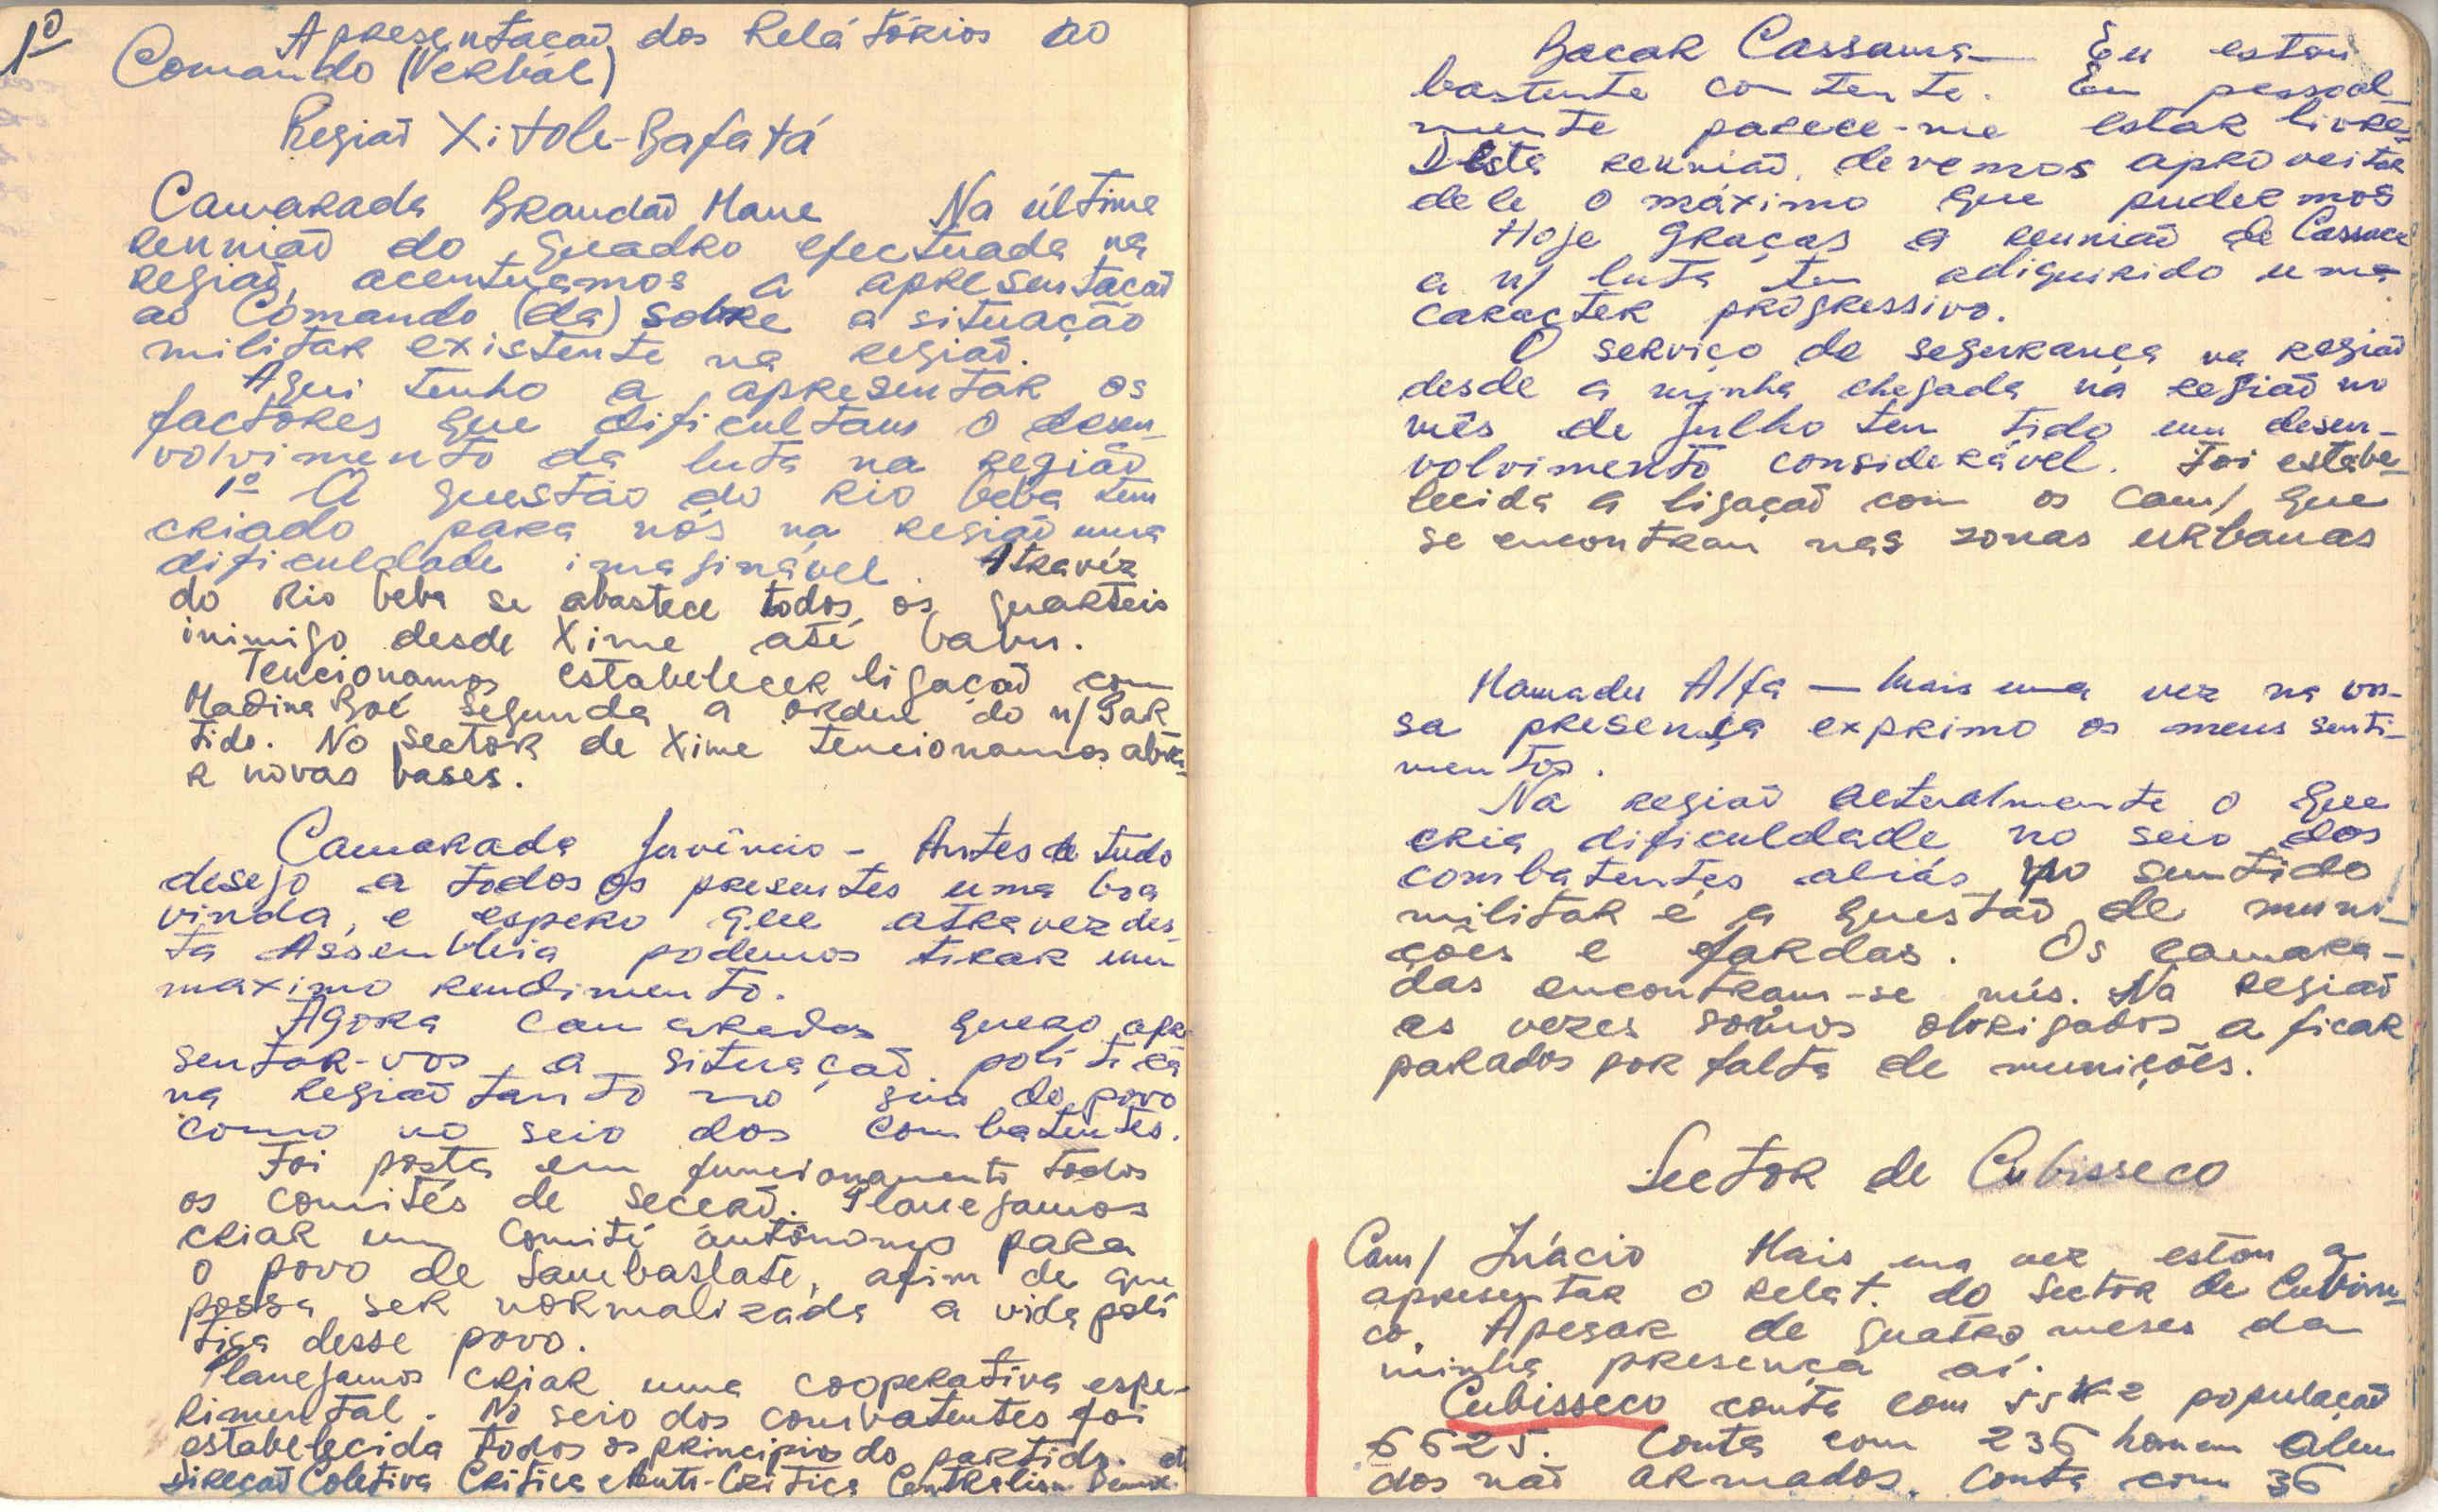 1º
Apresentação dos Relátórios ao
Comando (Verbal)
Região Xitole-Bafatá
Camarada Brandão Mane Na última
reunião do quadro efectuada na
região, acentuamos a apresentação
ao Comando (da) sobre a situação
militar existente na região.
Aqui tenho a apresentar os
factores que dificultam o desen-
volvimento da luta na região
1º A questão do Rio beba tem
criado para nós na região uma
dificuldade imaginável. Atravéz
do Rio beba se abastece todos os quarteis
inimigo desde Xime até babu.
Tencionamos estabelecer ligação com
Madina Boé segunda a ordem do n/ Par
tido. No sector de Xime tencionamos abri-
r novas bases.
Camarada Juvêncio - Antes de tudo
desejo a todos os presentes uma boa
vinda, e espero que atravez des-
ta Assembleia podemos tirar um
maximo rendimento.
Agora camaradas quero apre
sentar-vos a situação política
na Região tanto no seio do povo
como no seio dos combatentes.
Foi posta em funcionamento todos
os comités de secção. Planejamos
criar um Comité autónomo para
o povo de , afim de que
possa ser normalizada a vida polí
tica desse povo.
Planejamos criar uma cooperativa espe-
rimental. No seio dos combatentes foi
estabelecida todos os principios do partido.
Direcção Coletiva Crítica e Auto-Crítica Centralism Democ
Bacar Cassama — Eu estou
bastante contente. Eu pessoal-
mente parece-me estar livre-
Desta reunião, devemos aproveitar
dele o máximo que pudermos
Hoje graças a reunião de Cassaca
a n/ luta tem adiquirido uma
caracter progressivo.
O serviço de segurança na região
desde a minha chegada na região no
mês de Julho tem tido um desen-
volvimento considerável. Foi estabe-
lecida a ligação com os Cam/ que
se encontram nas zonas urbanas
Mamadu Alfa — Mais uma vez na vos-
sa presença exprimo os meus senti-
mentos.
Na região actualmente o que
cria dificuldade no seio dos
combatentes aliás no sentido
militar é a questão de muni-
ções e fardas. Os camara-
das encontram-se nús. Na Região
as vezes somos obrigados a ficar
parados por falta de munições.
Sector de Cubisseco
Cam/ Inácio Mais uma vez estou a
apresentar o relat. do Sector de Cubisse-
co. Apesar de quatro meses da
minha presença aí.
Cubisseco conta com 55 K2 população
6625. Conta com 236 homem alem
dos não armados. Conta com 36